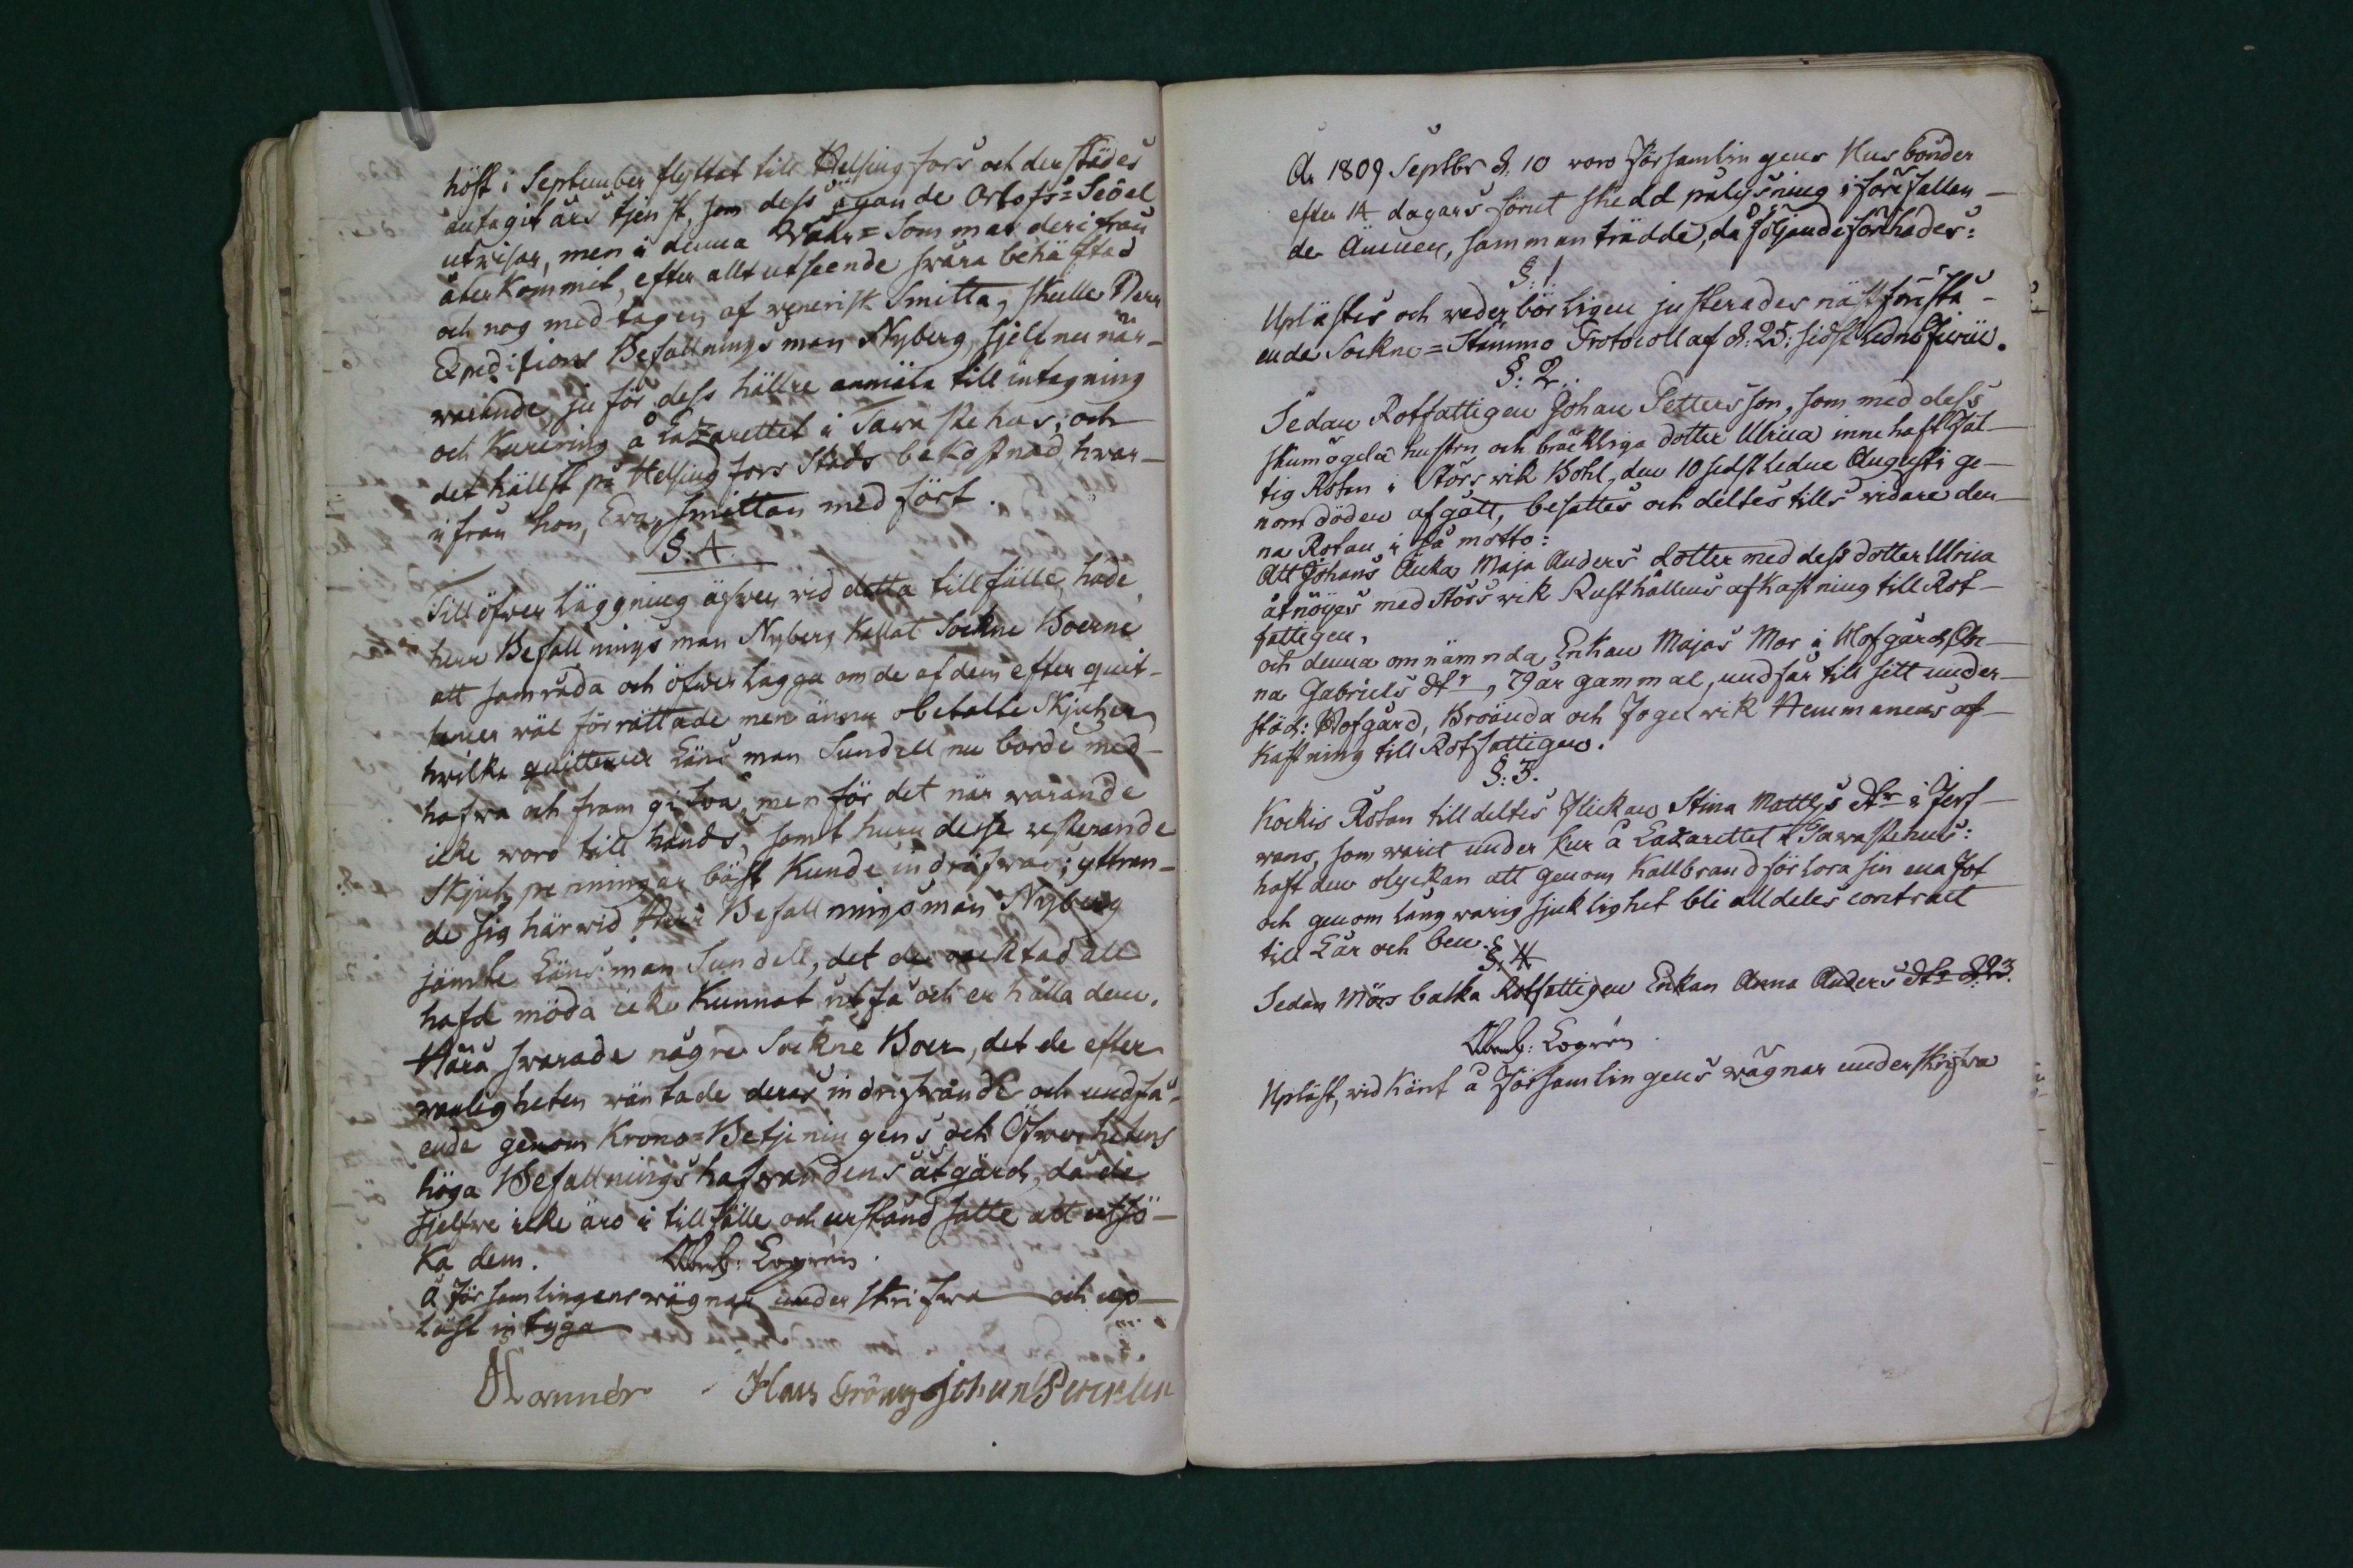 höst i September flyttat till Helsingfors och derstädes
antagit års tjenst, som dess ägande Orlofs=Sedel
utvisar, men i denna Wåhr=Sommar derifrån
återkommit, efter allt utseende svåra behäftad
och nog medtagen af venerisk Smitta, skulle Herr
Expeditions Befallningsman Nyberg sjelf nu när-
warande, ju för dess hällre anmäla till intagning
och Kurering å Lazarettet i Tawastehus; och
det hällst på Helsingfors Stads bekostnad, hwar-
ifrån hon, Eva, smittan medfört.
§. 4.
Till öfwerläggning äfwen wid detta tillfälle, hade
herr Befallningsman Nyberg kallat Sockne Boerne
att samråda och öfwerlägga om de af dem efter quit-
tencer wäl förrättade men ännu obetalte Skjutser
hwilka quittencer Länsman Sundell nu borde med-
hafwa och framgifwa, men för det närwarande
icke woro till hands, samt huru desse resterande
Skjutspenningar bäst kunde indrifwas; yttran-
de sig härwid Herr Befallningsman Nyberg
jämte Länsman Sundell, det de oacktad all
hafd möda icke kunnat utfå och erhålla dem.
Härå swarade någre Sockne Boer, det de efter
wanligheten wäntade deras indrifwande och undfå-
ende genom Krono=Betjeningens och Öfwerhetens
höga Befallningshafwandens åtgärd, då de
sjelfwe icke äro i tillfälle och urståndsatte att utsö-
ka dem. Logrén.
å Församlingens wägnar underskrifwa och up-
läst intyga
Hans Gröng Johan
A: 1809 Septbr d. 10 woro Församlingens Husbönder
efter 14 dagars förut skedd pålysning i förefallen-
de Ämnen, sammanträdde, då följande förehades:
§: 1.
Uplästes och wederbörligen justerades näst förestå-
ende Sockne=Stämmo Protocoll af d: 25: sidstledne Junii.
§: 2.
Sedan Rotfattigen Johan Pettersson, som med dess
skumögda hustru och bräckliga dotter Ulrica innehaft Fat-
tig Rotan i Störswik Bohl, den 10 sidstledne Augusti ge-
nom döden afgått, besattes och deltes tills widare den-
na Rotan i så motto:
Att Johans Änka Maja Anders dotter med dess dotter Ulrica
åtnöijes med Störswik Rusthållens afkastning till Rot-
fattigen,
och denna omnämnda Enkan Majas Mor i Hofgård, An-
na Gabriels dtr, 79 år gammal, undfår till sitt under-
stöd: Hofgård, Broända och Fogelwik Hemmanens af-
kastning till Rotfattigen.
§: 3.
Kockis Rotan tilldeltes Flickan Stina Matts dtr i Jerf-
wans, som warit under kur å Lazarettet i Tawastehus:
haft den olyckan att genom Kallbrand förlora sin ena Fot
och genom långwarig sjuklighet bli alldeles contract
till Lår och ben.
§. 4.
Sedan Mörsbacka Rotfattigen Enkan Anna Anders dtr d. 23.
Logrén
Upläst, widkänt å Församlingens wägnar underskrifwa